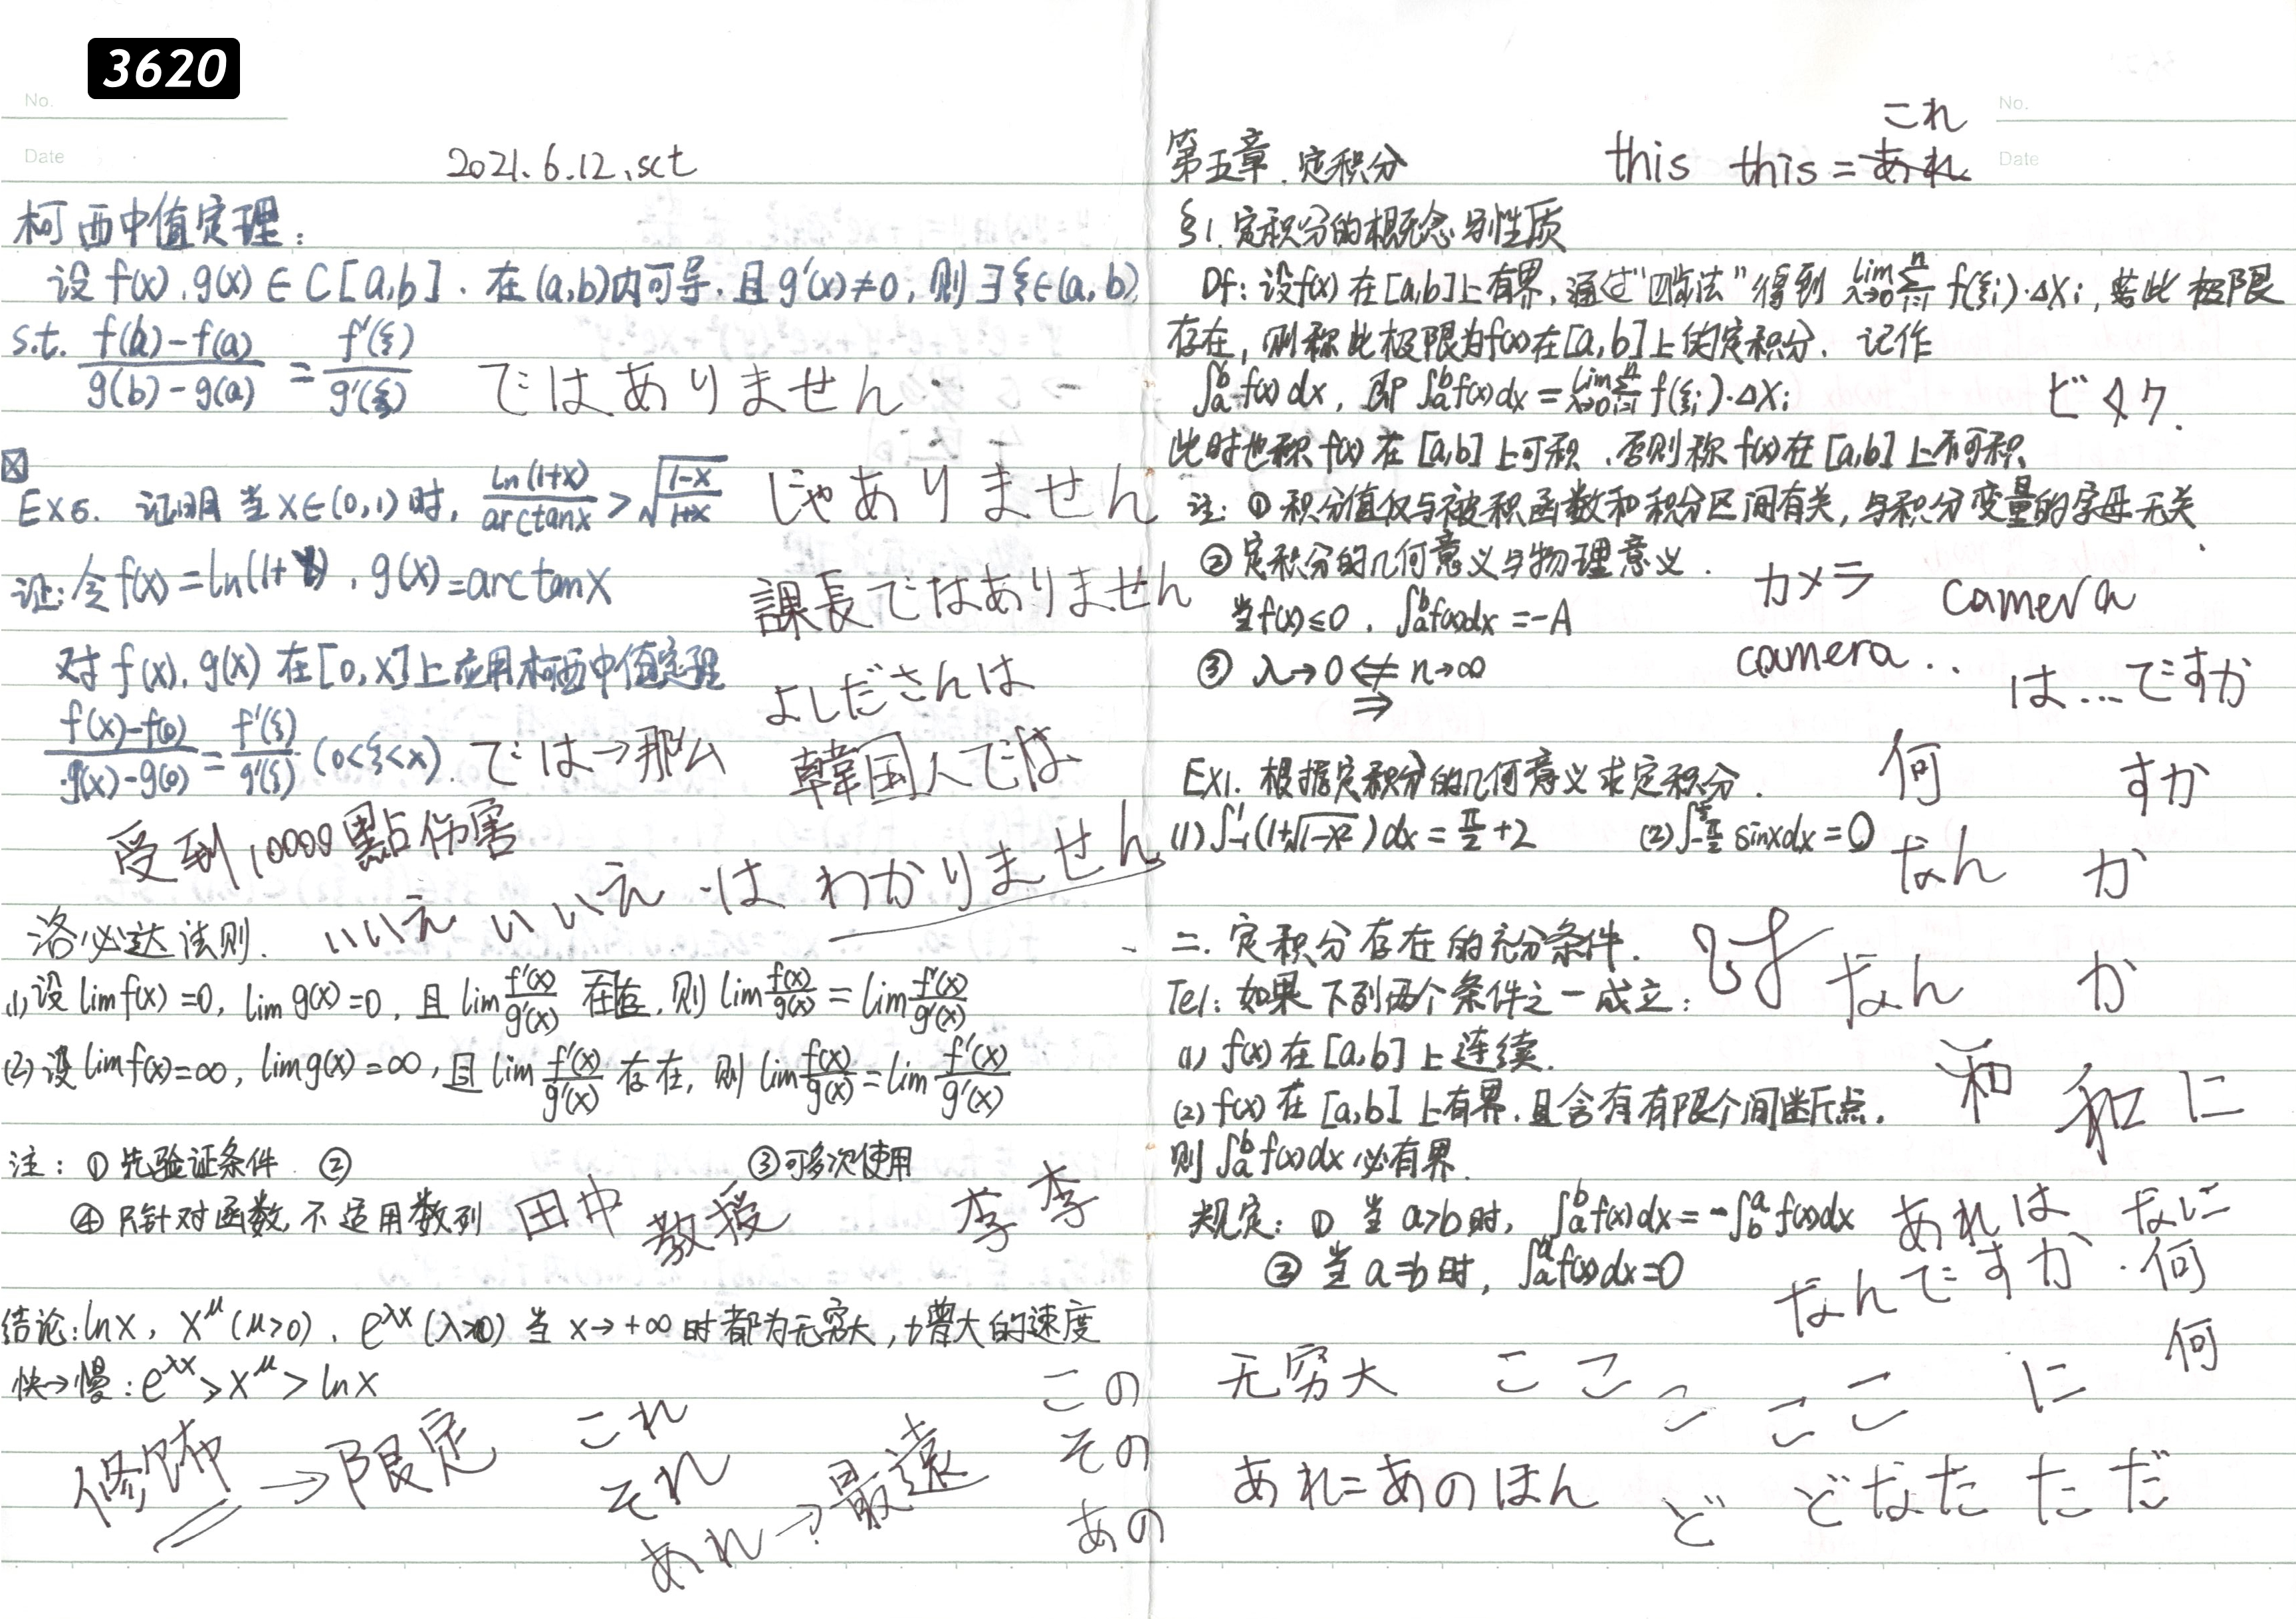 3620
No.
Date
2021.6.12.sct
柯西中值定理：
设 f(x), g(x) ∈ C[a,b]. 在(a,b)内可导, 且 g'(x)≠0, 则∃ξ∈(a,b)
s.t. (f(b)-f(a))/(g(b)-g(a)) = f'(ξ)/g'(ξ) ではありません
EX6. 证明 当 x∈(0,1) 时, ln(1+x)/arctanx > √((1-x)/(1+x)) じゃありません
证: 令 f(x)=ln(1+x), g(x)=arctanx
課長ではありません
对 f(x), g(x) 在[0,x]上应用柯西中值定理
よしださんは
(f(x)-f(0))/(g(x)-g(0)) = f'(ξ)/g'(ξ) (0<ξ<x). では→那么 韓国人では
受到10000點伤害
いいえ いいえ は わかりません
洛必达法则.
(1) 设 lim f(x)=0, lim g(x)=0, 且 lim f'(x)/g'(x) 存在, 则 lim f(x)/g(x) = lim f'(x)/g'(x)
(2) 设 lim f(x)=∞, lim g(x)=∞, 且 lim f'(x)/g'(x) 存在, 则 lim f(x)/g(x) = lim f'(x)/g'(x)
注: ① 先验证条件 ② ③可多次使用
④ 只针对函数, 不适用数列 田中 教授 李 李
结论: lnx, x^μ (μ>0), e^λx (λ>0) 当 x→+∞ 时都为无穷大, 增大的速度
快→慢: e^λx > x^μ > lnx
修饰 → 限定
これ
それ
あれ→最遠
この
その
あの
No.
Date
これ
第五章. 定积分 this this = あれ
§1. 定积分的概念与性质
Df: 设f(x) 在[a,b]上有界, 通过"四步法"得到 lim λ→0 ∑ i=1 n f(ξi)·Δxi, 若此极限
存在, 则称此极限为f(x)在[a,b]上的定积分. 记作
∫ab f(x)dx, 即 ∫ab f(x)dx = lim λ→0 ∑ i=1 n f(ξi)·Δxi
此时也称 f(x) 在[a,b]上可积. 否则称 f(x)在[a,b]上不可积
注: ① 积分值仅与被积函数和积分区间有关, 与积分变量的字母无关
② 定积分的几何意义与物理意义.
当f(x)≤0, ∫ab f(x)dx = -A
カメラ camera
camera..
③ λ→0 ⇍ n→∞
⇒
は...ですか
何 すか
EX1. 根据定积分的几何意义求定积分.
(1) ∫-1 1 (1+√(1-x²))dx = π/2 + 2 (2) ∫-π/2 π/2 sinxdx = 0
なん か
二. 定积分存在的充分条件.
なん か
Te1: 如果下列两个条件之一成立:
(1) f(x) 在[a,b]上连续.
(2) f(x) 在[a,b]上有界, 且含有有限个间断点.
和 和 に
则 ∫ab f(x)dx 必有界.
规定: ① 当 a>b 时, ∫ab f(x)dx = -∫ba f(x)dx あれは なに
② 当 a=b 时, ∫aa f(x)dx=0
なんですか. 何
何
无穷大 ここ こ ここ に
あれ=あのほん ど どなた ただ